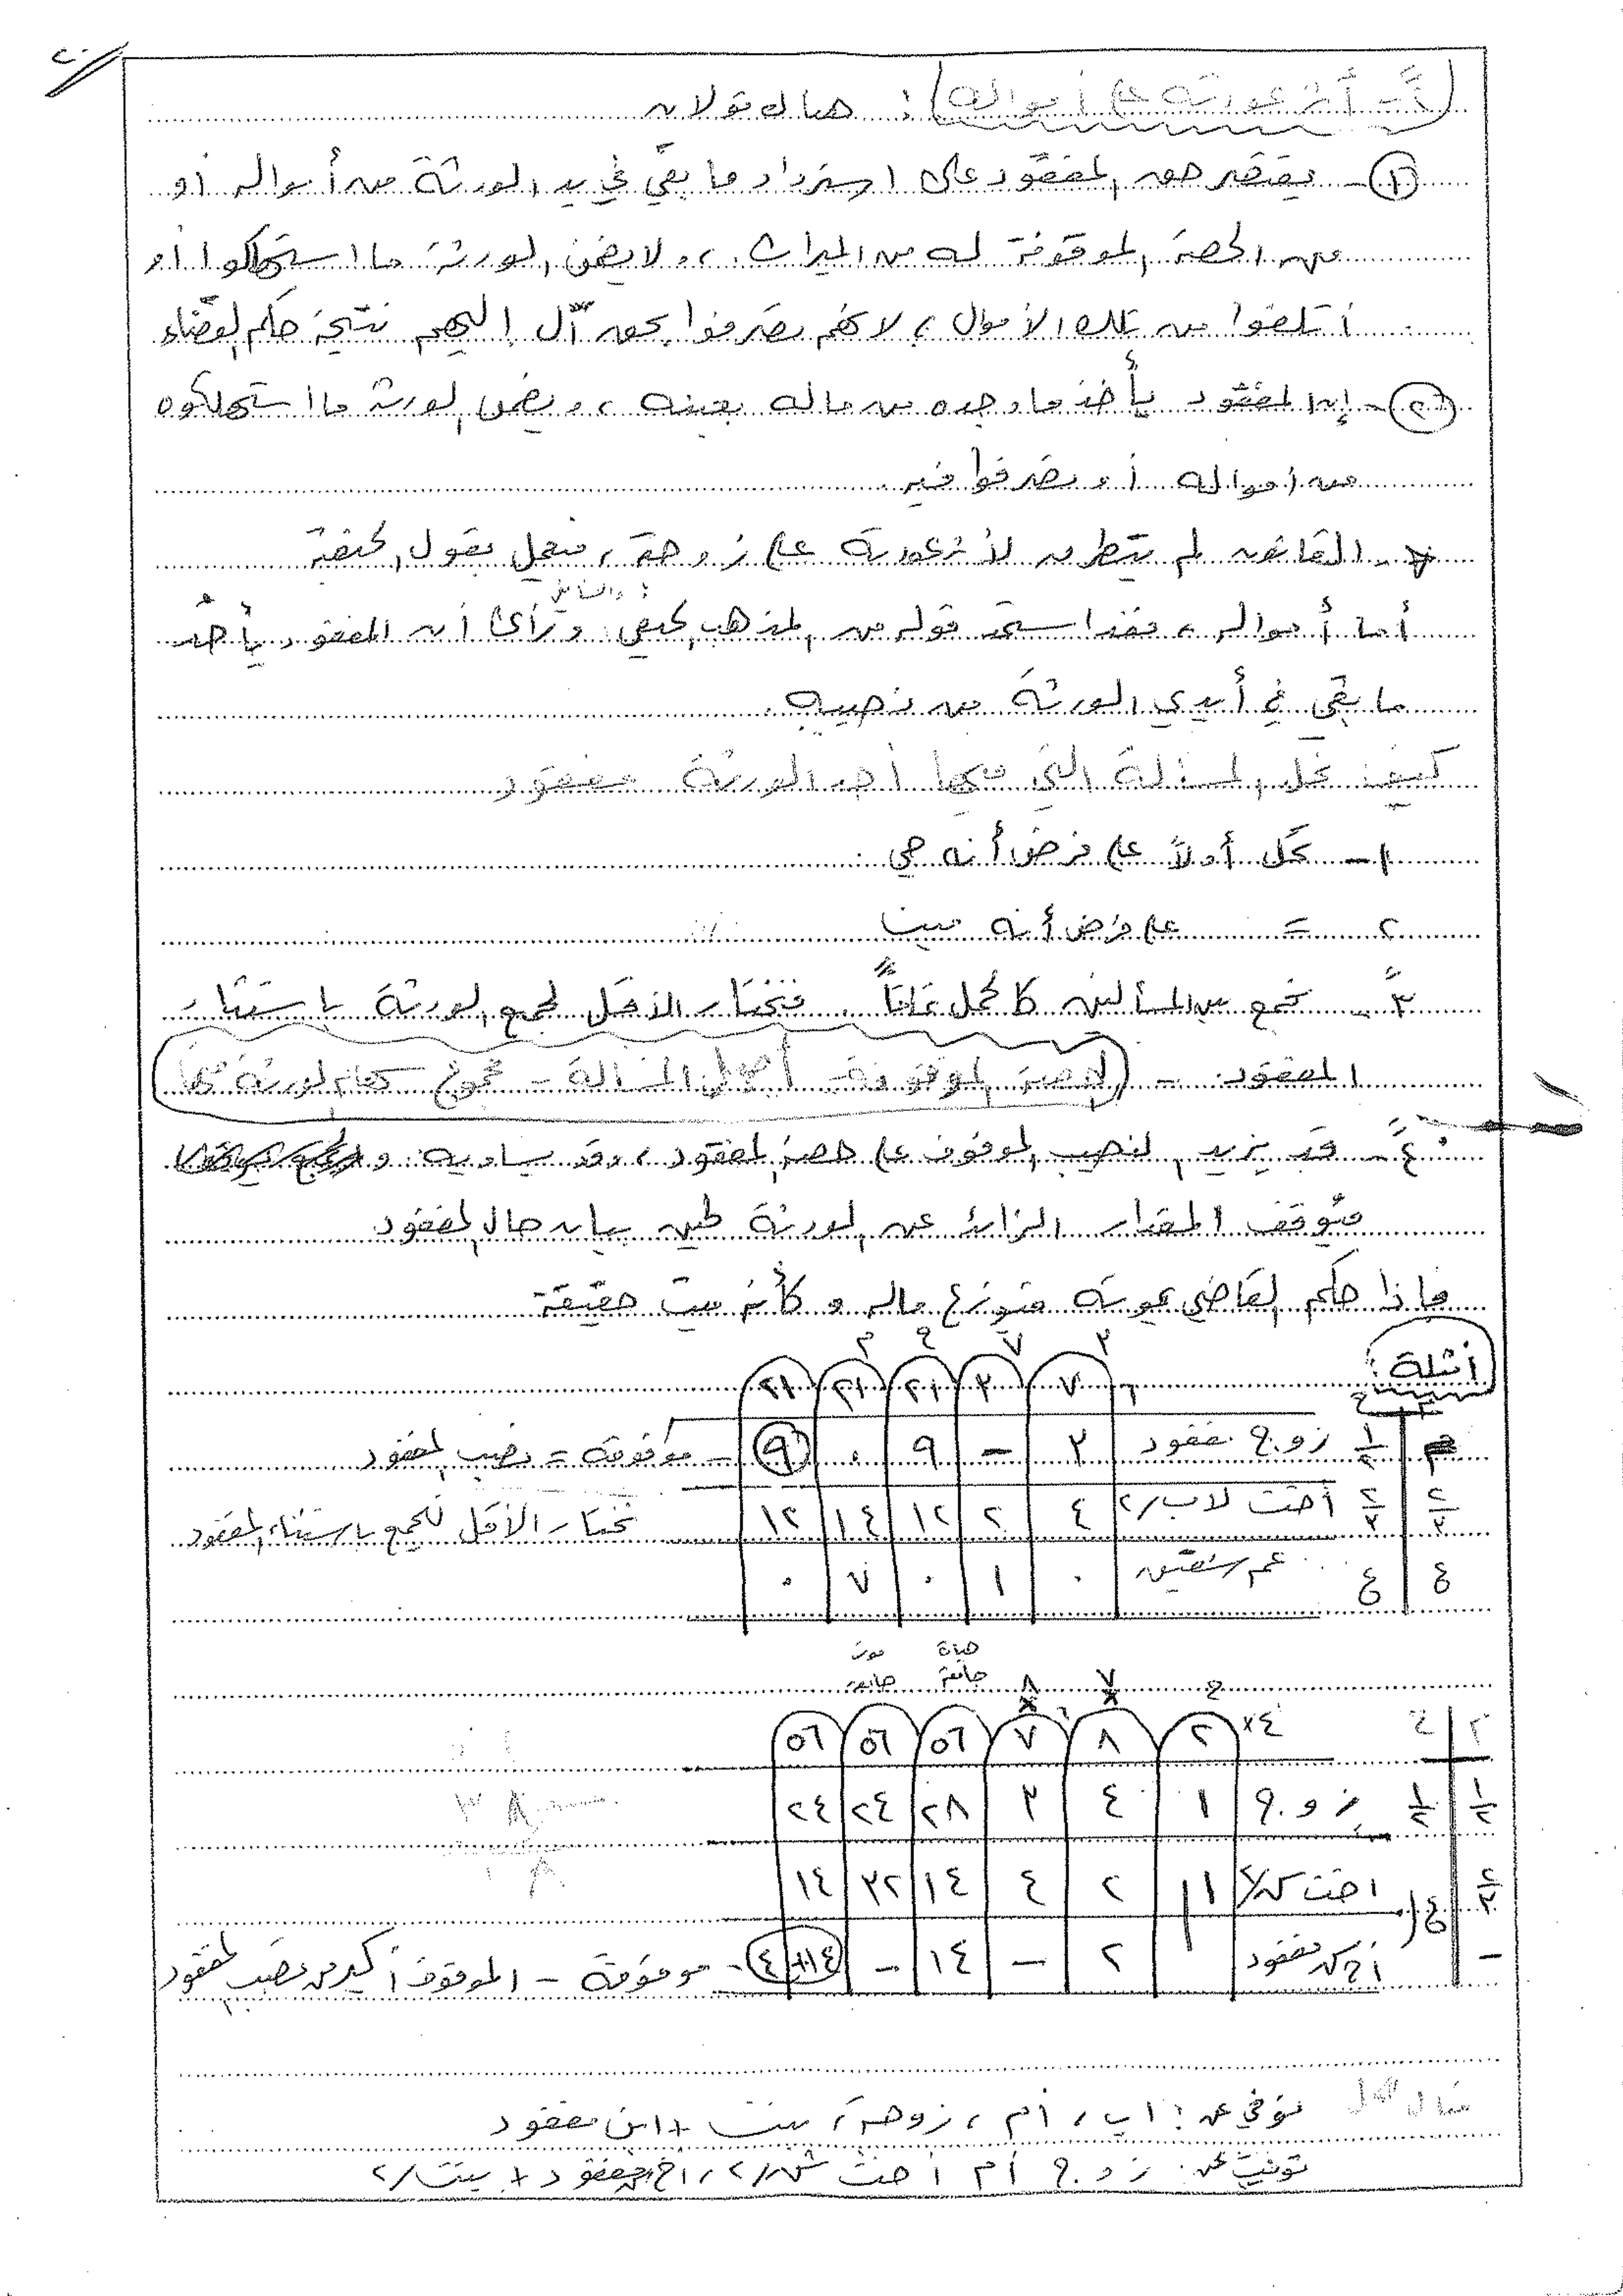 ثَ - أثر عودته على أمواله : هناك قولان
١- يقتصر حق المفقود على استرداد ما بقي في يد الورثة من أمواله أو
من الحصة الموقوفة له من الميراث ، ولا يضمن الورثة ما استهلكوا أو
أتلفوا من تلك الأموال ، لأنهم تصرفوا بحق آل إليهم نتيجة حكم القضاء
٢- إن المفقود يأخذ ما وجده من ماله بعينه ، ويضمن الورثة ما استهلكوه
من أمواله أو تصرفوا فيه
* القانون لم يتطرق لأثر عودته على زوجته ، فنعمل بقول الحنفية
والشافعي
أما أمواله ، فقد استمد قوله من المذهب الحنفي ورأى أن المفقود يأخذ
ما بقي في أيدي الورثة من نصيبه .
كيف تحل المسألة التي فيها أحد الورثة مفقود
١- تحل أولاً على فرض أنه حي .
٢ = على فرض أنه ميت
٣ً- نجمع بين المسألتين كالحمل تماماً . فنختار الأقل لجميع الورثة باستثناء
المفقود . - (الحصة الموقوفة = أصل المسألة - مجموع سهام الورثة
٤ً- قد يزيد النصيب الموقوف على حصة المفقود ، وقد يساويه و
فيوقف المقدار الزائد عن الورثة لحين بيان حال المفقود
فإذا حكم القاضي بموته فتوزع ماله و كأنه ميت حقيقة
أمثلة :
٣ ٧ ح م
م ح ٦ ٧ ٣ ٢١ ٢١ ٢١
١/٢ زوج مفقود ٣ - ٩ . ٩ - موقوفة = نصيب المفقود
٢/٣ ٢/٣ أخت لأب/٢ ٤ ٢ ١٢ ١٤ ١٢ نختار الأقل للجميع باستثناء المفقود
ع ع عم شقيق . ١ . ٧ .
حياة موت
ح ٧ ٨ جامعة جامعة
م ح ٤x ٢ ٨ ٧ ٥٦ ٥٦ ٥٦
١/٢ ١/٢ زوج ١ ٤ ٣ ٢٨ ٢٤ ٢٤
٢/٣ ع ١ ٢ ٤ ١٤ ٣٢ ١٤
- أخ مفقود ٢ - ١٤ - ١٤+٤ - موقوفة - الموقوف أكبر من نصيب المفقود
توفي عن : أب ، أم ، زوجة ، بنت + ابن مفقود
توفيت عن : زوج أم أخت ش/٢ ، أخ مفقود + بنت/٢